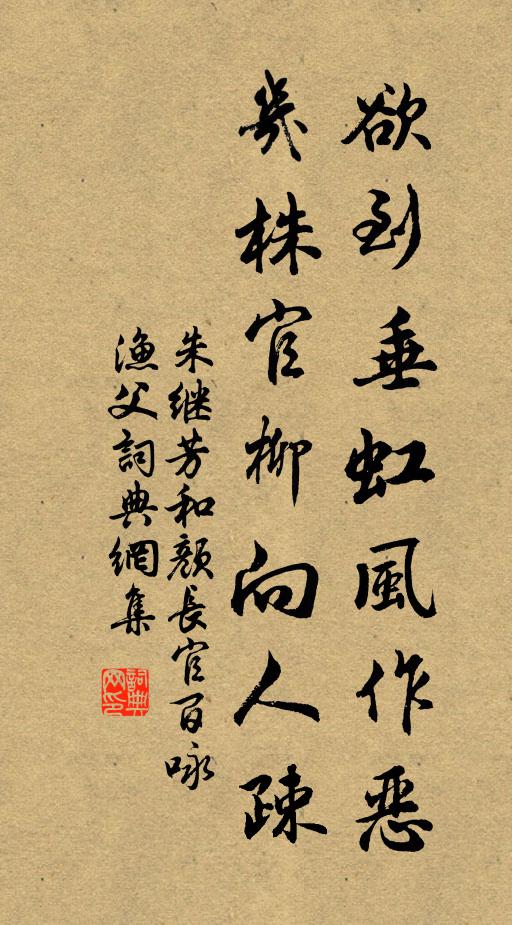 欲到垂虹風作惡
幾株官柳向人疎
朱继芳和顏長官百咏
漁父詞典網集
詞典网印